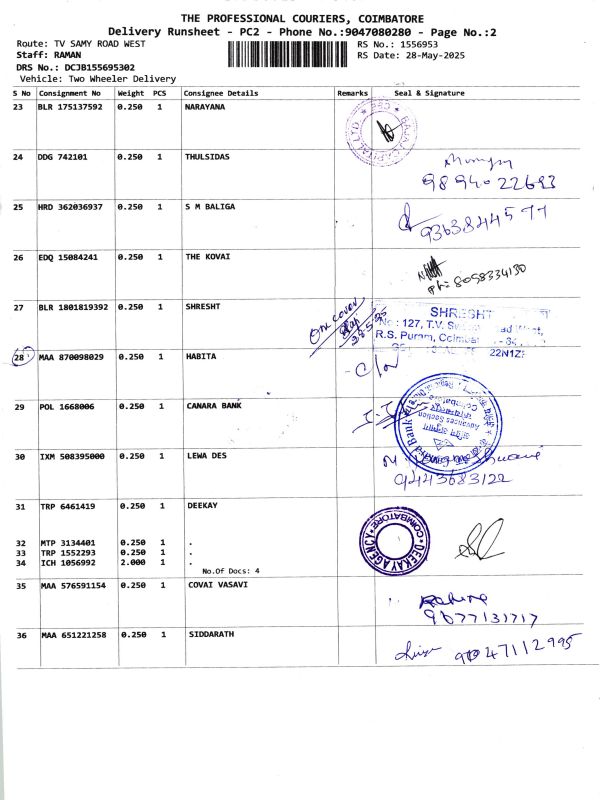 THE PROFESSIONAL COURIERS, COIMBATORE
Delivery Runsheet - PC2 - Phone No.:9047080280 - Page No.:2
Route: TV SAMY ROAD WEST
RS No.: 1556953
Staff: RAMAN
RS Date: 28-May-2025
DRS No.: DCJB155695302
Vehicle: Two Wheeler Delivery
S No Consignment No Weight PCS Consignee Details Remarks Seal & Signature
23 BLR 175137592 0.250 1 NARAYANA
BAJAJ CAPITAL LTD.
24 DDG 742101 0.250 1 THULSIDAS
25 HRD 362036937 0.250 1 S M BALIGA
9363844577
26 EDQ 15084241 0.250 1 THE KOVAI
ph: 8098334130
27 BLR 1801819392 0.250 1 SHRESHT
One cover
SHRESHT
No : 127, T.V.
R.S. Puram,
28 MAA 870098029 0.250 1 HABITA
29 POL 1668006 0.250 1 CANARA BANK
Advances Section
Coimbatore
30 IXM 508395000 0.250 1 LEWA DES
9443683122
31 TRP 6461419 0.250 1 DEEKAY
COIMBATORE
DEEKAY AGENCY
32 MTP 3134401 0.250 1 .
33 TRP 1552293 0.250 1 .
34 ICH 1056992 2.000 1 .
No.Of Docs: 4
35 MAA 576591154 0.250 1 COVAI VASAVI
9677131717
36 MAA 651221258 0.250 1 SIDDARATH
9047112995